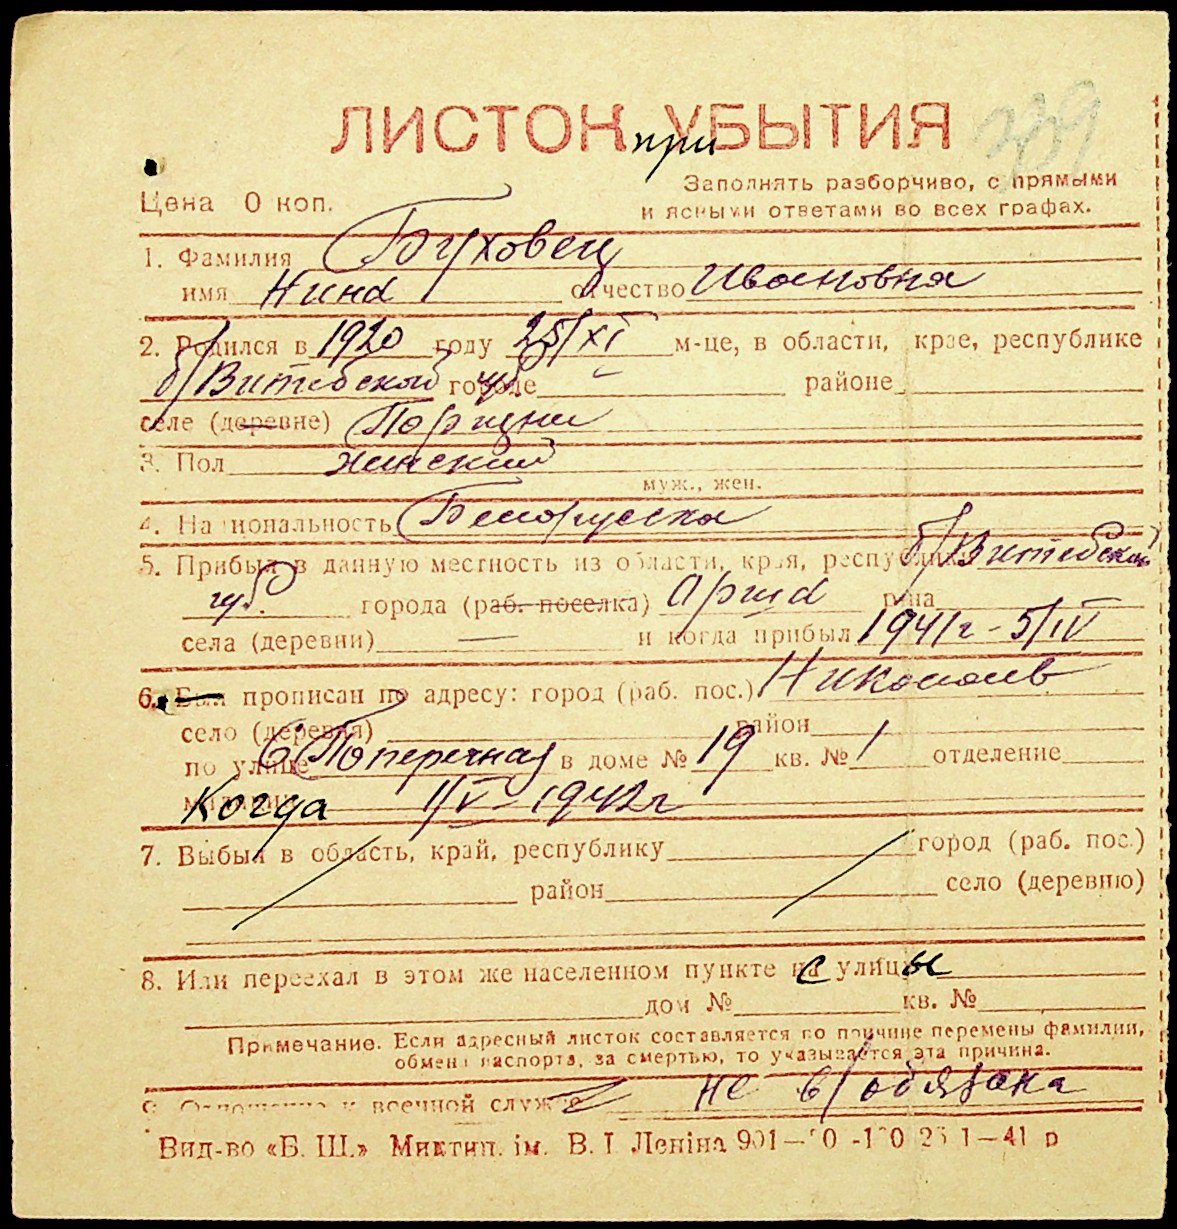 ЛИСТОК при УБЫТИЯ
Заполнять разборчиво, с прямыми
Цена 0 коп.
и ясными ответами во всех графах.
1. Фамилия Буховец
имя Нина отчество Ивановна
2. Родился в 1920 году 25/XI м-це, в области, крае, республике
б/Витебской городе губ районе
селе (деревне)
3. Пол женский
муж., жен.
4. Национальность Белорусска
5. Прибыл в данную местность из области, края, республики б/Витебской
губ. города (раб. поселка) р-на
села (деревни) — и когда прибыл 1941 г - 5/IV
6. Был прописан по адресу: город (раб. пос.) Николаев
село (деревня) район
по улице 6 Поперечная в доме № 19 кв. № 1 отделение
милиции Когда 1/V - 1942 г
7. Выбыл в область, край, республику город (раб. пос.)
район село (деревню)
8. Или переехал в этом же населенном пункте на с улицы
дом № кв. №
Примечание. Если адресный листок составляется по причине перемены фамилии,
обмена паспорта, за смертью, то указывается эта причина.
9. Отношение к военной службе не в/обязана
Вид-во «Б. Ш.» Миктип. ім. В. І Леніна 901—